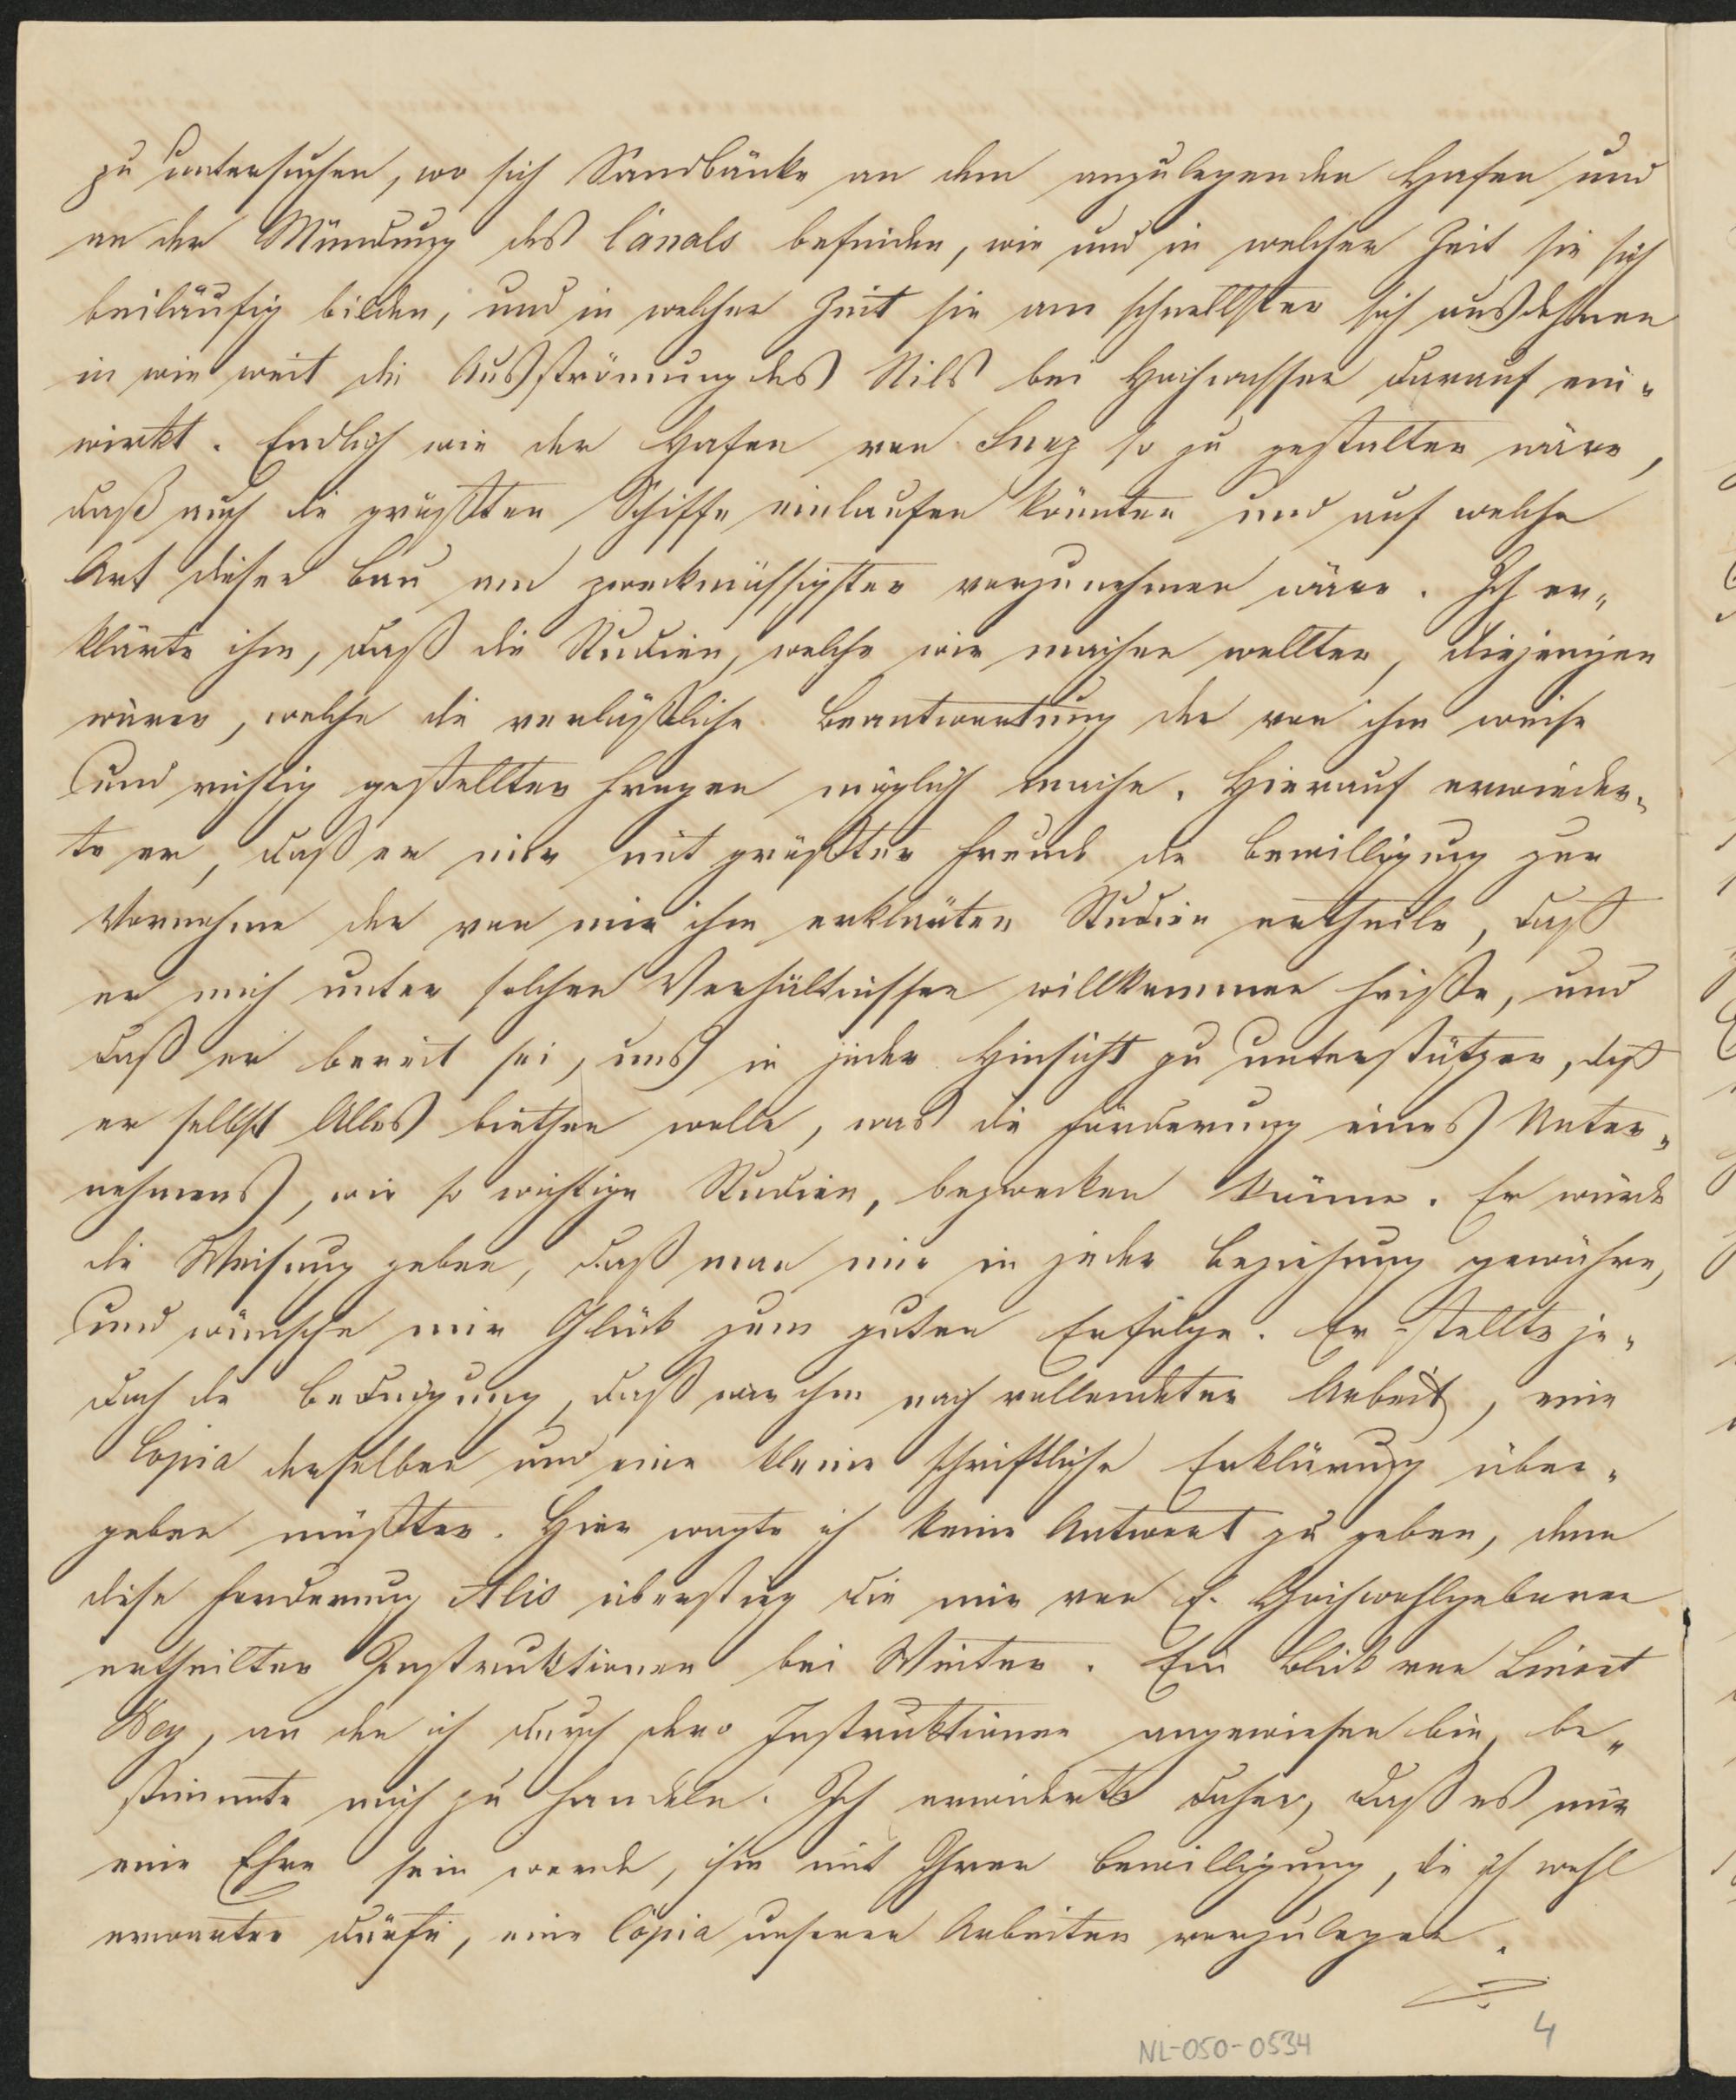 zu untersuchen, wo sich Sandbänke an dem anzulegenden Hafen und
an der Mündung des Canals befinden, wie und in welcher Zeit sie sich
beiläufig bilden, und in welcher Zeit sie am schnellsten sich ausdehnen
in wie weit die Ausströmung des Nils bei Hochwasser darauf ein-
wirkt. Endlich wie der Hafen von Suez so zu gestalten wäre,
daß auch die größten Schiffe einlaufen könnten und auf welche
Art dieser Bau am zweckmässigsten vorzunehmen wäre. Ich er-
klärte ihm, daß die Studien, welche wir machen wollten, diejenigen
wären, welche die verläßliche Beantwortung der von ihm weise
und richtig gestellten Fragen möglich mache. Hierauf erwieder-
te er, daß er mir mit größter Freude die Bewilligung zur
Vornahme der von mir ihm erklärten Studien ertheile, daß
er mich unter solchen Verhältnissen willkommen heiße, und
daß er bereit sei, uns in jeder Hinsicht zu unterstützen, daß
er selbst Alles biethen wolle, was die Förderung eines Unter-
nehmens, wie so wichtige Studien, bezwecken könne. Er würde
die Weisung geben, daß man mir in jeder Beziehung gewähre,
und wünsche mir Glück zum guten Erfolge. Er stellte je-
doch die Bedingung, daß wir ihm nach vollendeter Arbeit, eine
Copia derselben und eine kleine schriftliche Erklärung über-
geben müßten. Hier wagte ich keine Antwort zu geben, denn
diese Forderung Alis überstieg die mir von E. Hochwohlgeboren
ertheilten Instruktionen bei Weiten. Ein Blick von Linant
Bey, an den ich durch dero Instruktionen angewiesen bin, be-
stimmte mich zu handeln. Ich erwiderte daher, daß es mir
eine Ehre sein werde, ihm mit Ihrer Bewilligung, die ich wohl
erwarten dürfe, eine Copia unserer Arbeiten vorzulegen.
4
NL-050-0534